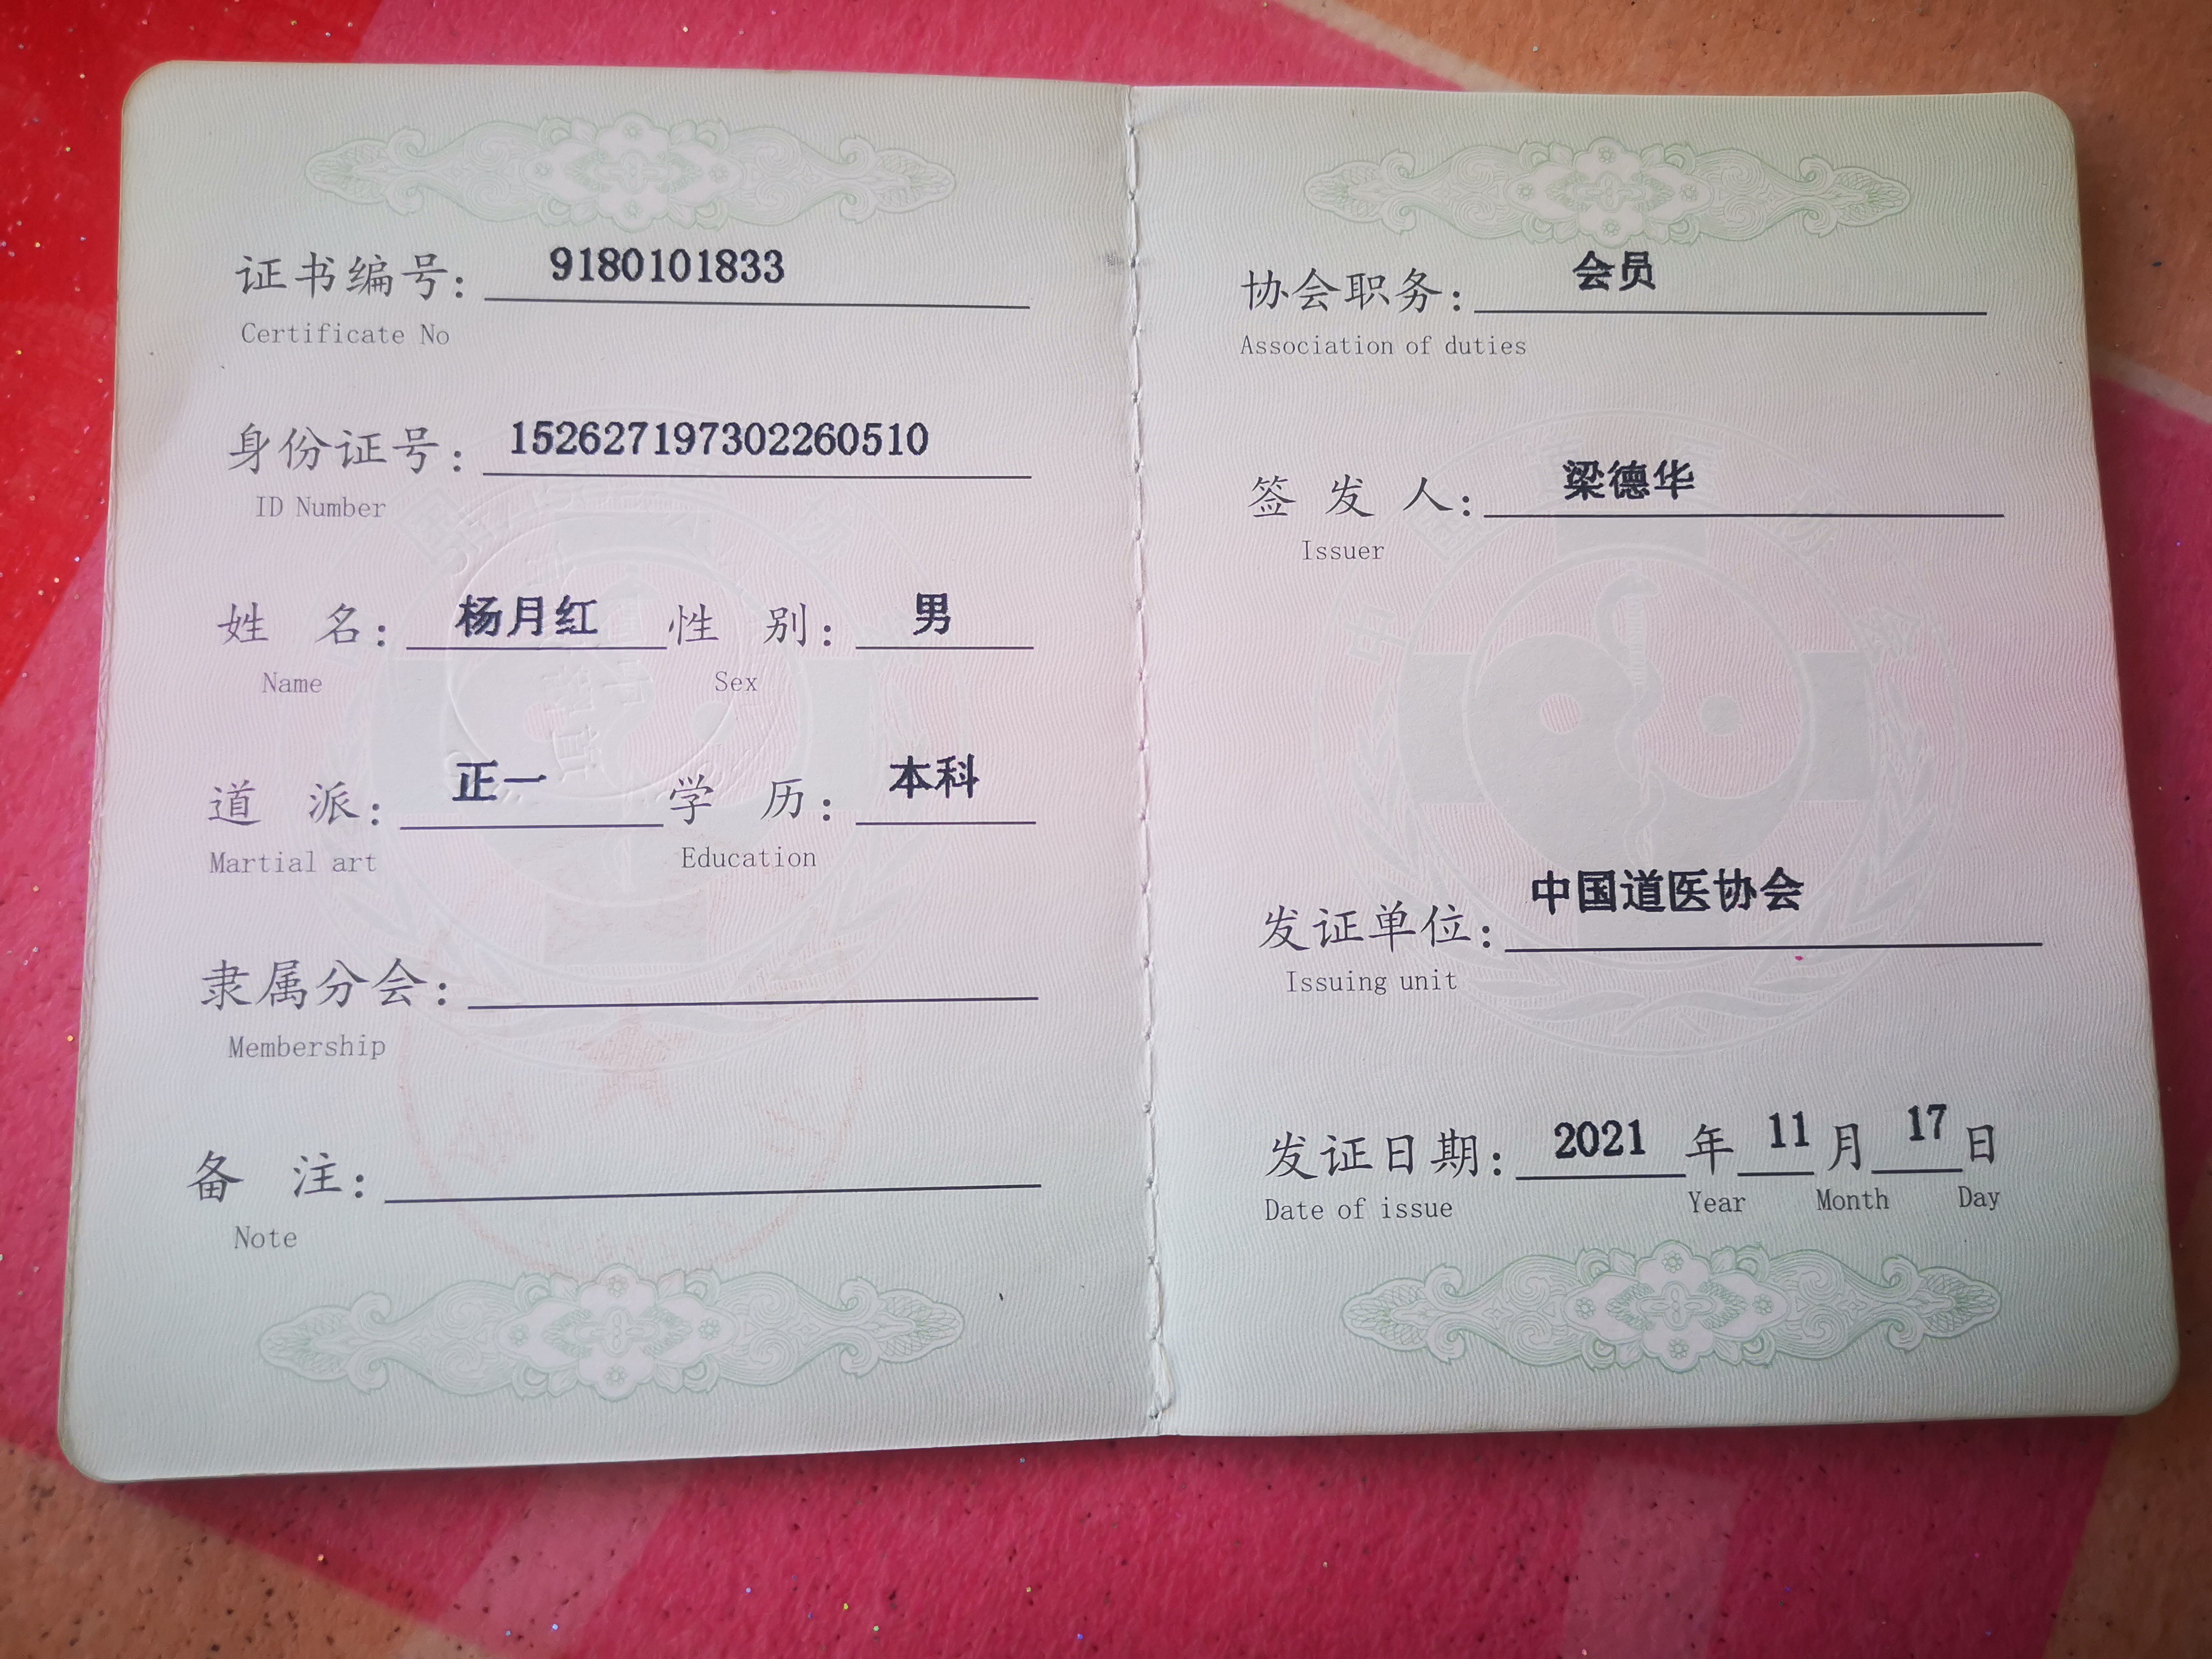 证书编号: 9180101833
Certificate No
身份证号: 152627197302260510
ID Number
姓 名: 杨月红 性 别: 男
Name Sex
道 派: 正一 学 历: 本科
Martial art Education
隶属分会:
Membership
备 注:
Note
协会职务: 会员
Association of duties
签 发 人: 梁德华
Issuer
发证单位: 中国道医协会
Issuing unit
发证日期: 2021 年 11 月 17 日
Date of issue Year Month Day